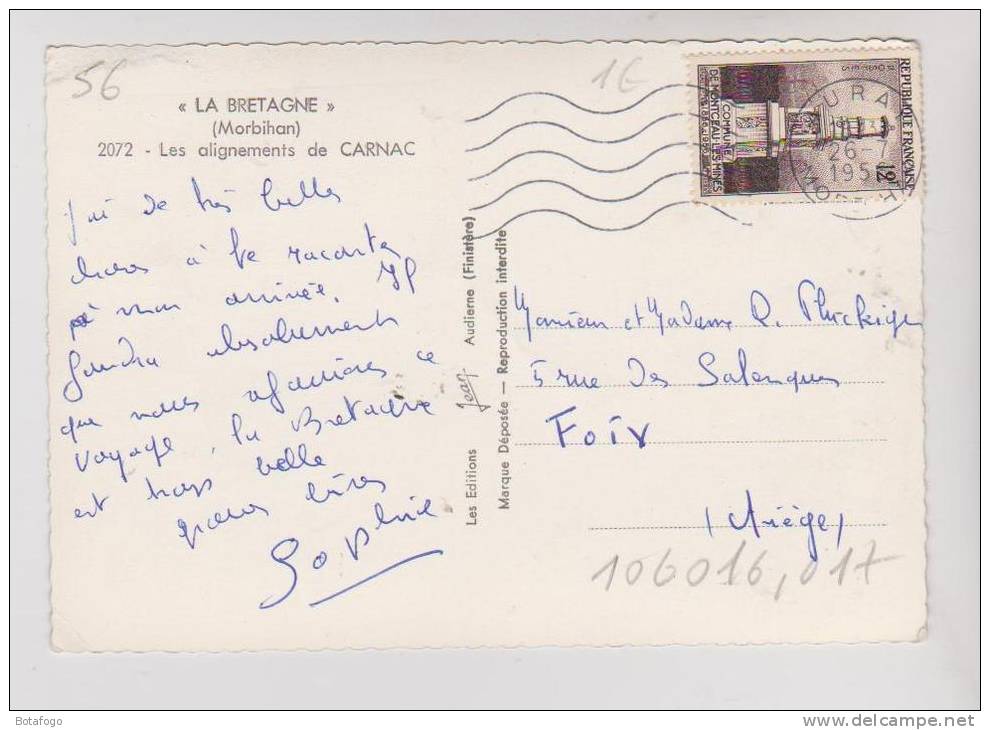 56
1€
« LA BRETAGNE »
(Morbihan)
2072 - Les alignements de CARNAC
J'ai de très belles
choses à te raconter
à mon arrivée. Il
faudra absolument
que nous fassions ce
voyage, la Bretagne
est trop belle
gros bises
Sophie
Les Editions Jean Audierne (Finistère)
Marque Déposée — Reproduction interdite
REPUBLIQUE FRANÇAISE
POSTES
COMMUNE
DE MONTCEAU-LES-MINES
1856-1956
12F
26-7
195
Monsieur et Madame R. Fluckiger
5 rue des Salenques
FOIX
(Ariège)
106016,017
Botafogo
www.delcampe.net